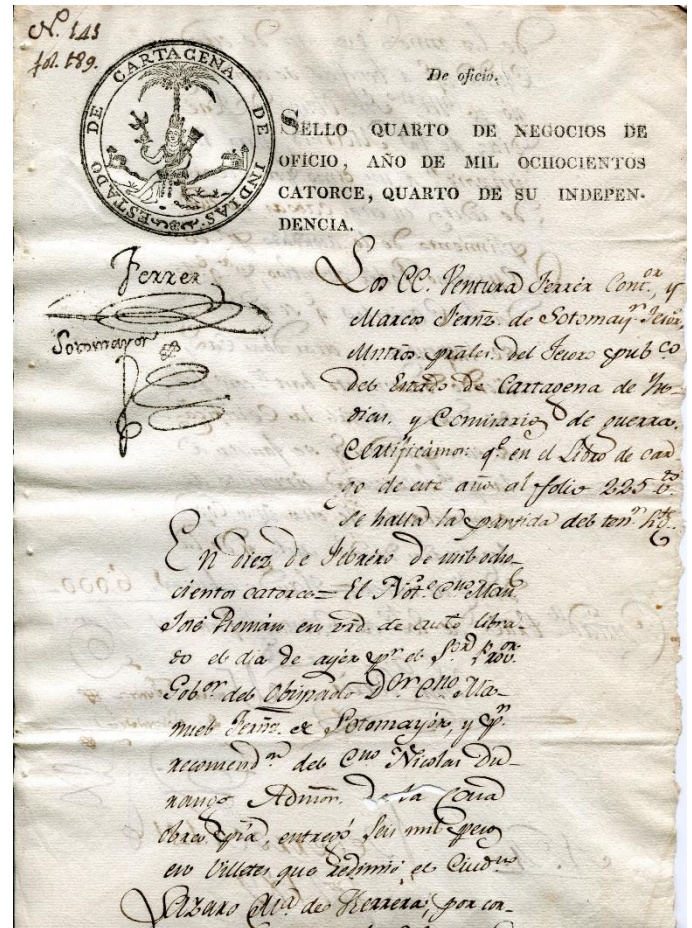 N. 141
fol. 189.
ESTADO DE CARTAGENA DE INDIAS.
De oficio.
SELLO QUARTO DE NEGOCIOS DE
OFICIO, AÑO DE MIL OCHOCIENTOS
CATORCE, QUARTO DE SU INDEPEN-
DENCIA.
Ferrer
Sotomayor
Los CC. Ventura Ferrer Cont.or, y
Marcos Fernz. de Sotomayr. Tesor.
Mntros. prales. del Tesoro pub.co
del Estado de Cartagena de Yn-
dias, y Comisarios de guerra.
Certificamos: qe. en el Libro de car
go de este año al folio 225
se halla la partida del tenr.
En diez de Febrero de mil ocho-
cientos catorce= El Not.o C.no Man.
José Román en vrd. de auto libra-
do el dia de ayer pr. el S.or Prov.or
Gobor. del Obispado D.or C.no Ma-
nuel Fernz. de Sotomayór, y pr.
recomend.on del C.no Nicolas Du-
rango Admor. de la
obra pia, entregó seis mil pesos
en Villetes que redimió el Ciud.no
Lázaro Ma. de Herrera, por con-